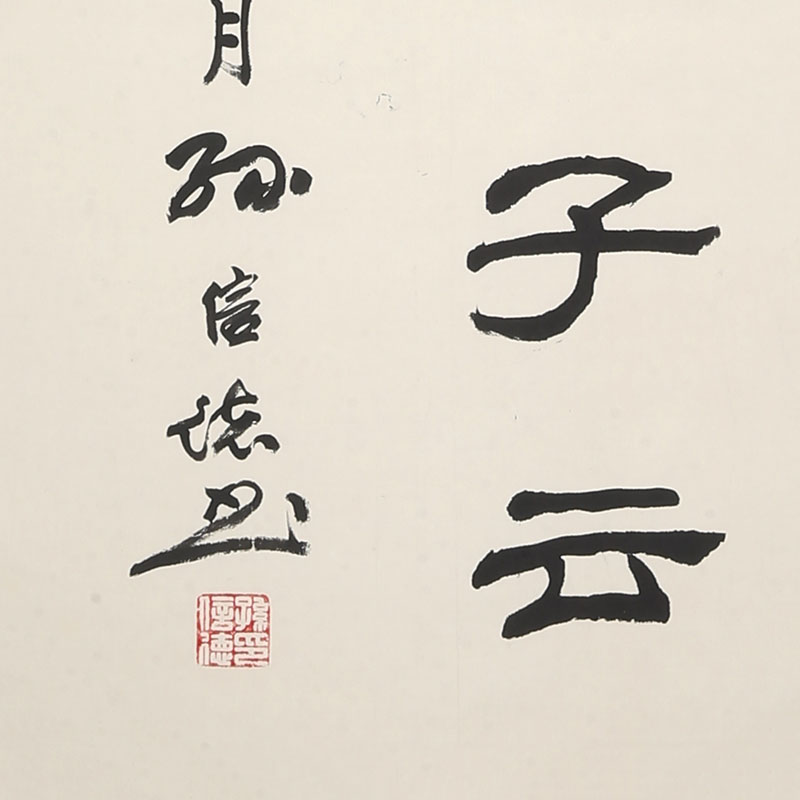 子云
月孙信德书
孫信德印